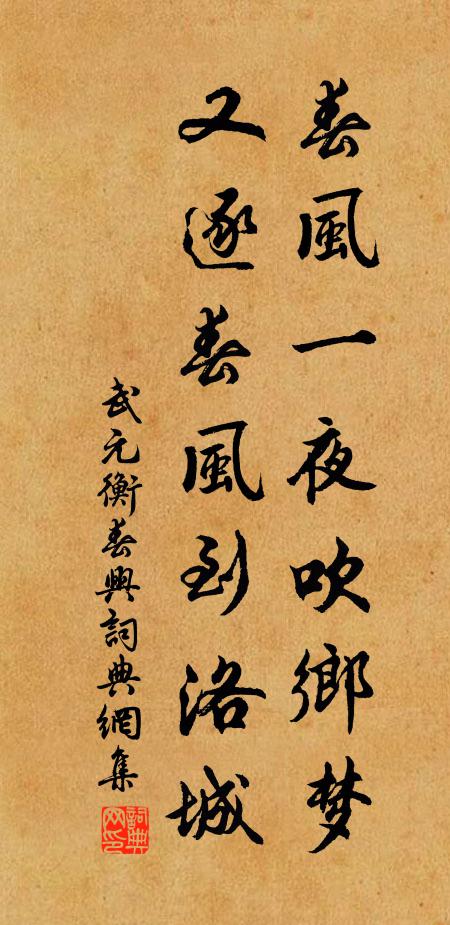 春風一夜吹鄉梦
又逐春風到洛城
武元衡春興詞典網集
詞典网印